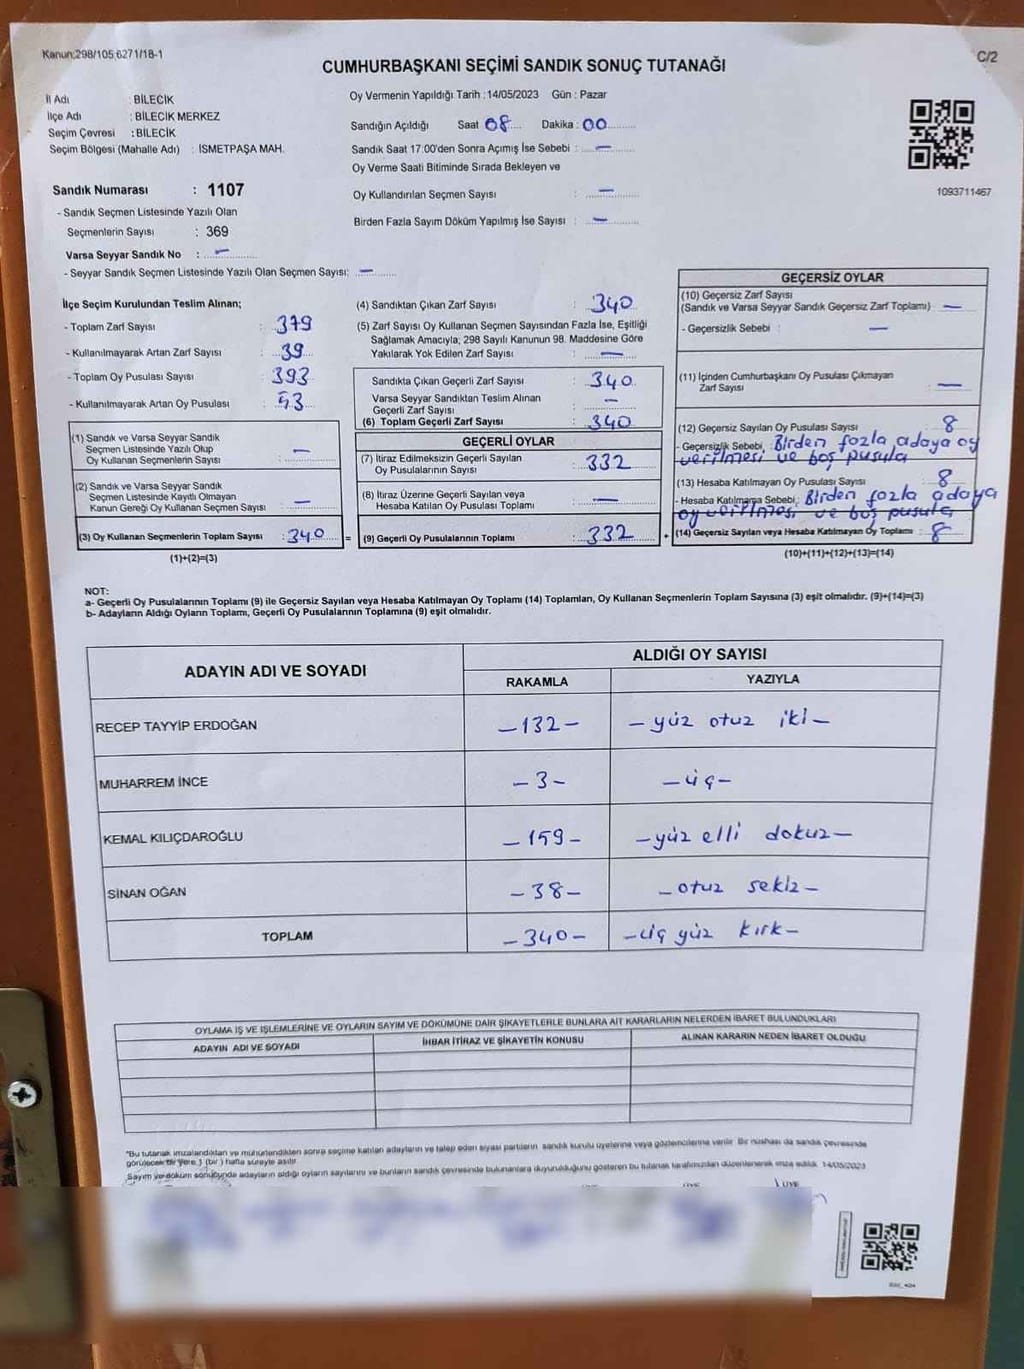 Kanun:298/105,6271/18-1
C/2
CUMHURBAŞKANI SEÇİMİ SANDIK SONUÇ TUTANAĞI
İl Adı : BİLECİK
İlçe Adı : BİLECİK MERKEZ
Seçim Çevresi : BİLECİK
Seçim Bölgesi (Mahalle Adı) : İSMETPAŞA MAH.
Sandık Numarası : 1107
- Sandık Seçmen Listesinde Yazılı Olan
Seçmenlerin Sayısı : 369
Varsa Seyyar Sandık No : —
- Seyyar Sandık Seçmen Listesinde Yazılı Olan Seçmen Sayısı: —
Oy Vermenin Yapıldığı Tarih : 14/05/2023 Gün : Pazar
Sandığın Açıldığı Saat 08 Dakika : 00
Sandık Saat 17:00'den Sonra Açımış İse Sebebi : —
Oy Verme Saati Bitiminde Sırada Bekleyen ve
Oy Kullandırılan Seçmen Sayısı : —
Birden Fazla Sayım Döküm Yapılmış İse Sayısı : —
1093711467
İlçe Seçim Kurulundan Teslim Alınan;
- Toplam Zarf Sayısı : 379
- Kullanılmayarak Artan Zarf Sayısı : 39
- Toplam Oy Pusulası Sayısı : 393
- Kullanılmayarak Artan Oy Pusulası : 53
(1) Sandık ve Varsa Seyyar Sandık
Seçmen Listesinde Yazılı Olup
Oy Kullanan Seçmenlerin Sayısı : —
(2) Sandık ve Varsa Seyyar Sandık
Seçmen Listesinde Kayıtlı Olmayan
Kanun Gereği Oy Kullanan Seçmen Sayısı : —
(3) Oy Kullanan Seçmenlerin Toplam Sayısı : 340 =
(1)+(2)=(3)
(4) Sandıktan Çıkan Zarf Sayısı : 340
(5) Zarf Sayısı Oy Kullanan Seçmen Sayısından Fazla İse, Eşitliği
Sağlamak Amacıyla; 298 Sayılı Kanunun 98. Maddesine Göre
Yakılarak Yok Edilen Zarf Sayısı : —
Sandıkta Çıkan Geçerli Zarf Sayısı : 340
Varsa Seyyar Sandıktan Teslim Alınan
Geçerli Zarf Sayısı : —
(6) Toplam Geçerli Zarf Sayısı : 340
GEÇERLİ OYLAR
(7) İtiraz Edilmeksizin Geçerli Sayılan
Oy Pusulalarının Sayısı : 332
(8) İtiraz Üzerine Geçerli Sayılan veya
Hesaba Katılan Oy Pusulaları Toplamı : —
(9) Geçerli Oy Pusulalarının Toplamı : 332 +
GEÇERSİZ OYLAR
(10) Geçersiz Zarf Sayısı
(Sandık ve Varsa Seyyar Sandık Geçersiz Zarf Toplamı) —
- Geçersizlik Sebebi : —
(11) İçinden Cumhurbaşkanı Oy Pusulası Çıkmayan
Zarf Sayısı : —
(12) Geçersiz Sayılan Oy Pusulası Sayısı : 8
- Geçersizlik Sebebi: Birden fazla adaya oy
verilmesi ve boş pusula
(13) Hesaba Katılmayan Oy Pusulası Sayısı : 8
- Hesaba Katılmama Sebebi: Birden fazla adaya
oy verilmesi ve boş pusula
(14) Geçersiz Sayılan veya Hesaba Katılmayan Oy Toplamı : 8
(10)+(11)+(12)+(13)=(14)
NOT:
a- Geçerli Oy Pusulalarının Toplamı (9) ile Geçersiz Sayılan veya Hesaba Katılmayan Oy Toplamı (14) Toplamları, Oy Kullanan Seçmenlerin Toplam Sayısına (3) eşit olmalıdır. (9)+(14)=(3)
b- Adayların Aldığı Oyların Toplamı, Geçerli Oy Pusulalarının Toplamına (9) eşit olmalıdır.
ADAYIN ADI VE SOYADI ALDIĞI OY SAYISI
RAKAMLA YAZIYLA
RECEP TAYYİP ERDOĞAN —132— — yüz otuz iki —
MUHARREM İNCE —3— —üç—
KEMAL KILIÇDAROĞLU —159— —yüz elli dokuz—
SİNAN OĞAN —38— —otuz sekiz—
TOPLAM —340— —üç yüz kırk—
OYLAMA İŞ VE İŞLEMLERİNE VE OYLARIN SAYIM VE DÖKÜMÜNE DAİR ŞİKAYETLERLE BUNLARA AİT KARARLARIN NELERDEN İBARET BULUNDUKLARI
ADAYIN ADI VE SOYADI İHBAR İTİRAZ VE ŞİKAYETİN KONUSU ALINAN KARARIN NEDEN İBARET OLDUĞU
*Bu tutanak imzalandıktan ve mühürlendikten sonra seçime katılan adayların ve talep eden siyasi partilerin sandık kurulu üyelerine veya gözlemcilerine verilir. Bir nüshası da sandık çevresinde
görülecek bir yere 1 (bir) hafta süreyle asılır.
Sayım ve döküm sonucunda adayların aldığı oyların sayılarını ve bunların sandık çevresinde bulunanlara duyurulduğunu gösteren bu tutanak tarafımızdan düzenlenerek imza edildi. 14/05/2023
ÜYE